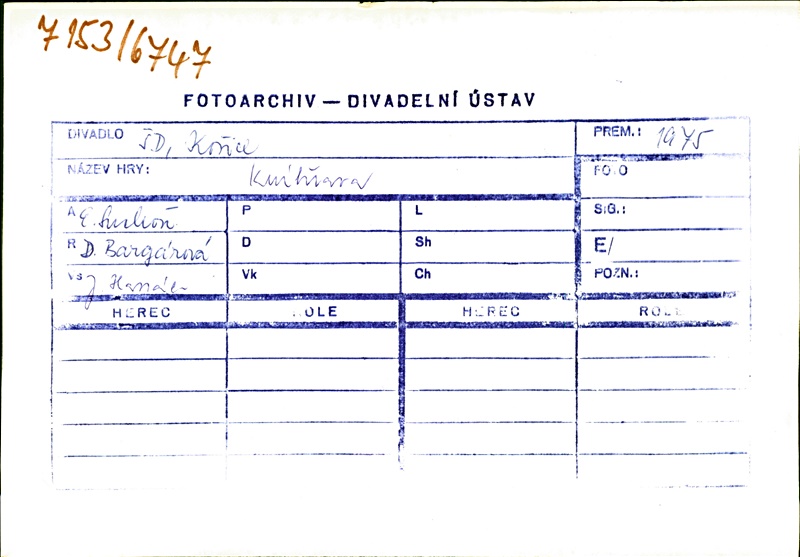 7153/6747
FOTOARCHIV — DIVADELNÍ ÚSTAV
DIVADLO ŠD, Košice
PREM.: 1975
NÁZEV HRY:
FOTO
A E. P L SIG.:
R D. Bargárová D Sh E/
VS J. Hanák Vk Ch POZN.:
HEREC ROLE HEREC ROLE